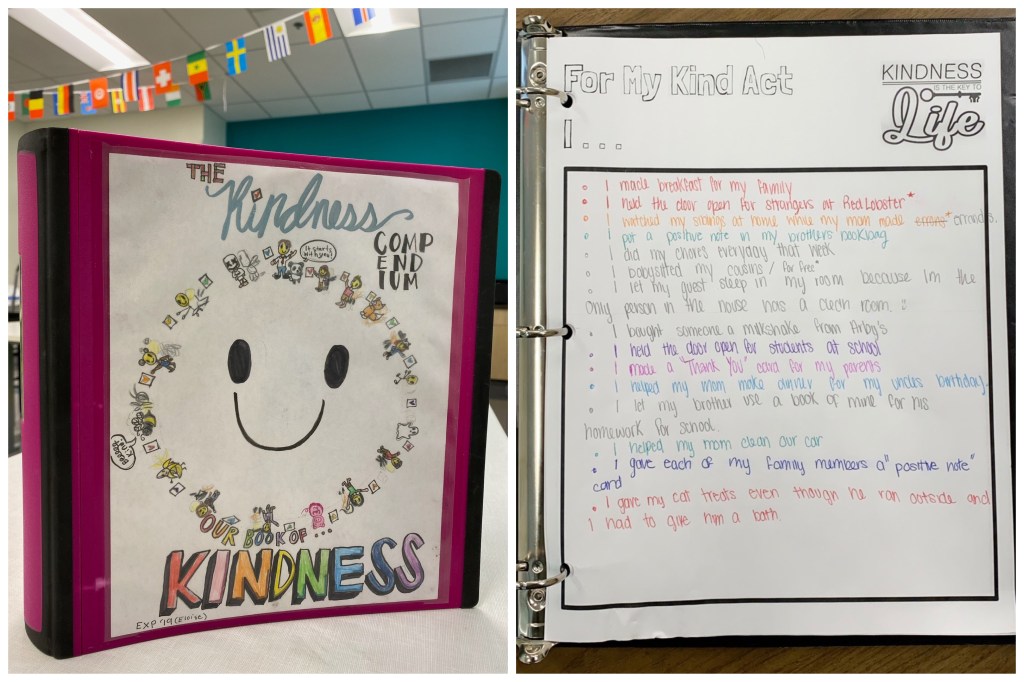 THE
Kindness
COMP
END
IUM
It starts
with you!
OUR BOOK OF ...
KINDNESS
EXP '19 (Eloise)
For My Kind Act
I ...
KINDNESS
IS THE KEY TO
Life
• I made breakfast for my family
• I held the door open for strangers at Red Lobster*
• I watched my siblings at home while my mom made errans* errands.
• I put a positive note in my brothers bookbag
• I did my chores everyday that week
• I babysitted my cousins / for free*
• I let my guest sleep in my room because Im the
only person in the house has a clean room. :
• I bought someone a milkshake from Arby's
• I held the door open for students at school
• I made a "Thank You" card for my parents
• I helped my mom make dinner for my uncles birthday.
• I let my brother use a book of mine for his
homework for school.
• I helped my mom clean our car
• I gave each of my family members a "positive note"
card
• I gave my cat treats even though he ran outside and
I had to give him a bath